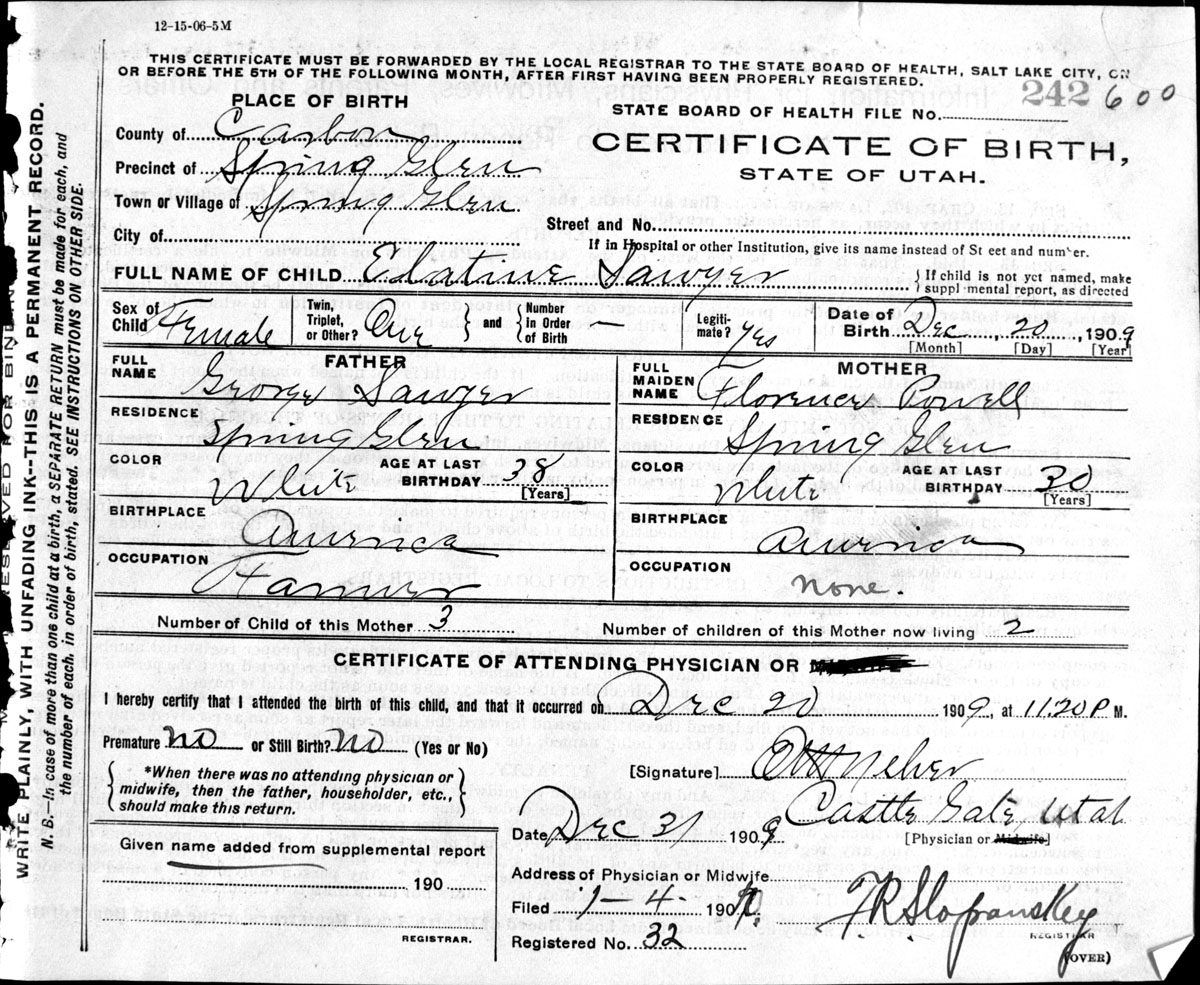 12-15-06-5M
THIS CERTIFICATE MUST BE FORWARDED BY THE LOCAL REGISTRAR TO THE STATE BOARD OF HEALTH, SALT LAKE CITY, ON
OR BEFORE THE 5TH OF THE FOLLOWING MONTH, AFTER FIRST HAVING BEEN PROPERLY REGISTERED.
242 600
PLACE OF BIRTH
STATE BOARD OF HEALTH FILE No.
County of Carbon
CERTIFICATE OF BIRTH,
Precinct of Spring Glen
STATE OF UTAH.
Town or Village of Spring Glen
Street and No.
City of
If in Hospital or other Institution, give its name instead of St eet and number.
FULL NAME OF CHILD Elatine Sawyer
{ If child is not yet named, make
suppl mental report, as directed
Sex of Child Female
Twin, Triplet, or Other? One } and { Number in Order of Birth —
Legiti-mate? yes
Date of Birth Dec 20, 1909
[Month] [Day] [Year]
FATHER
FULL NAME George Sawyer
RESIDENCE Spring Glen
COLOR White AGE AT LAST BIRTHDAY 38
[Years]
BIRTHPLACE America
OCCUPATION Farmer
MOTHER
FULL MAIDEN NAME Florence Powell
RESIDENCE Spring Glen
COLOR White AGE AT LAST BIRTHDAY 30
[Years]
BIRTHPLACE America
OCCUPATION None.
Number of Child of this Mother 3
Number of children of this Mother now living 2
CERTIFICATE OF ATTENDING PHYSICIAN OR
I hereby certify that I attended the birth of this child, and that it occurred on Dec 20 1909, at 11.20 P M.
Premature no or Still Birth? no (Yes or No)
{ *When there was no attending physician or
midwife, then the father, householder, etc.,
should make this return. }
[Signature]
Castle Gate Utah
Date Dec 31 1909
[Physician or Midwife]
Given name added from supplemental report
190
REGISTRAR.
Address of Physician or Midwife
Filed 1-4- 190
Registered No. 32
REGISTRAR
(OVER)
WRITE PLAINLY, WITH UNFADING INK--THIS IS A PERMANENT RECORD.
N. B.--In case of more than one child at birth, a SEPARATE RETURN must be made for each, and
the number of each, in order of birth, stated. SEE INSTRUCTIONS ON OTHER SIDE.